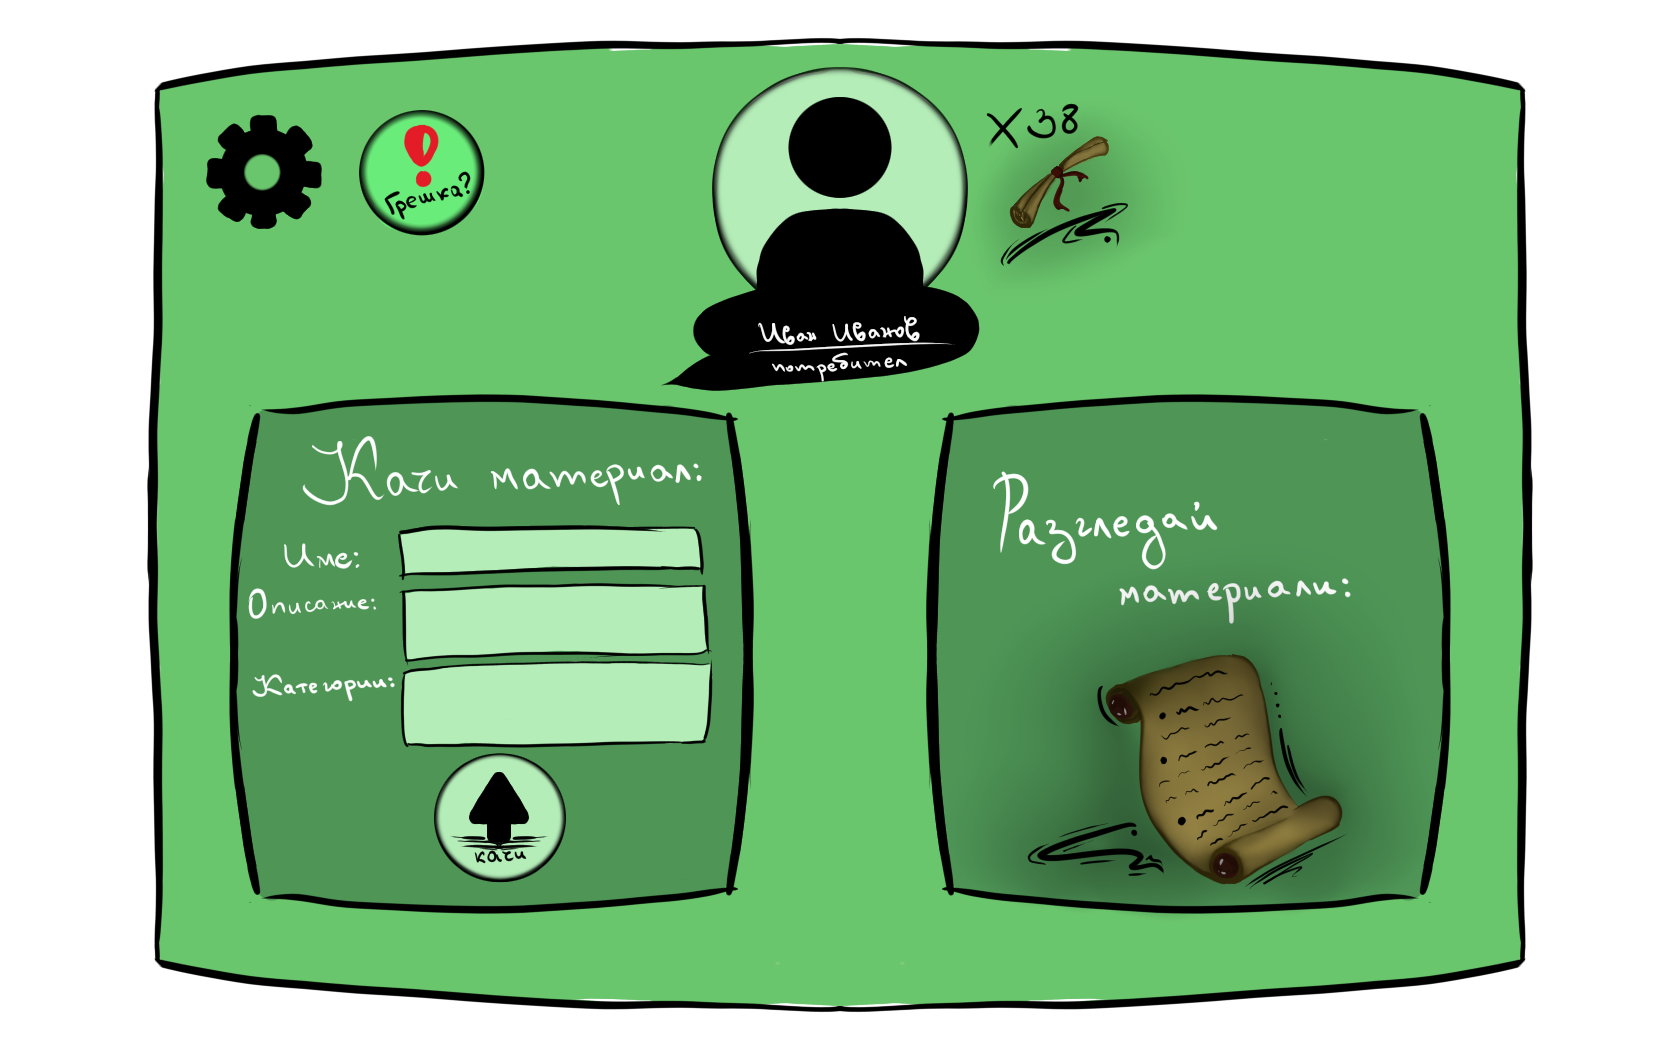 X38
Грешка?
Иван Иванов
потребител
Качи материал:
Име:
Описание:
Категории:
качи
Разгледай
материали: